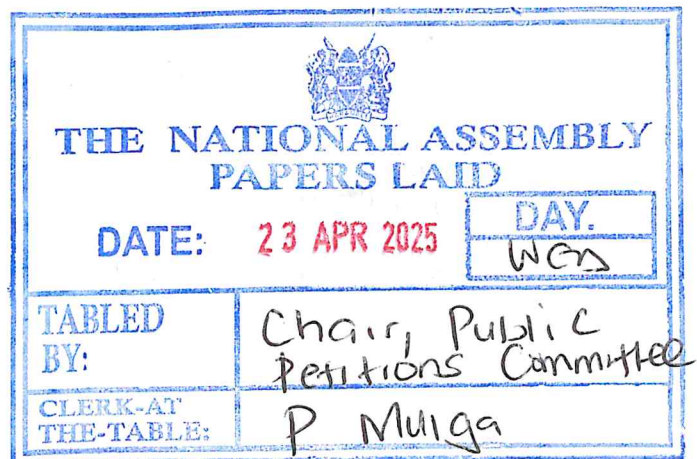 THE NATIONAL ASSEMBLY
PAPERS LAID
DATE: 23 APR 2025
DAY.
WED
TABLED BY:
Chair, Public
Petitions Committee
CLERK-AT
THE-TABLE:
P Mulga